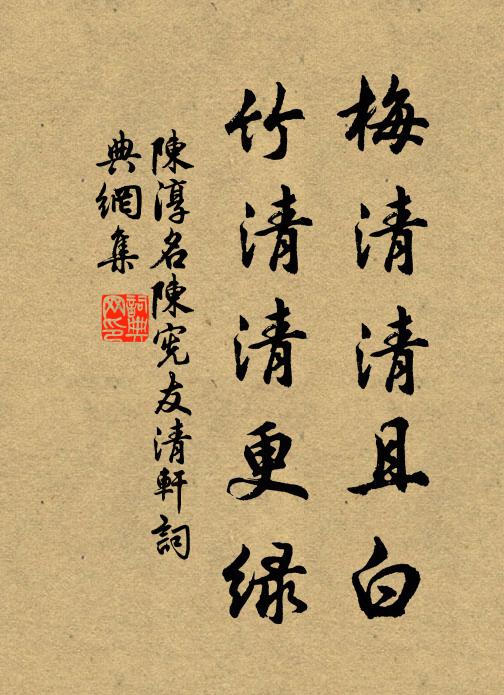 梅清清且白
竹清清更绿
陳淳名陳宪友清軒詞
典網集
詞典
网印